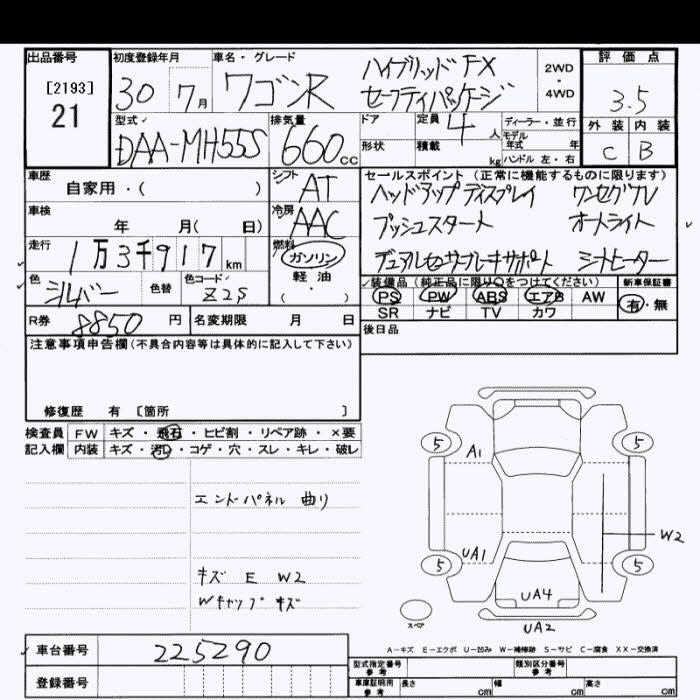 出品番号 初度登録年月 車名・グレード 評価点
[2193]
21
30 7月 ワゴンR ハイブリッドFX
セーフティパッケージ
2WD
・
4WD
3.5
外装 内装
C B
型式 排気量 ドア 定員 ディーラー・並行
DAA-MH55S 660cc 4人 モデル年式 年
形状 積載 kg ハンドル 左・右
車歴 シフト
自家用・( ) AT
セールスポイント(正常に機能するものに限ります)
ヘッドアップディスプレイ ワンセグTV
プッシュスタート オートライト
デュアルセンサーブレーキサポート シートヒーター
車検 冷房
年 月( 日) AAC
走行 燃料
1万3千917km ガソリン
軽・油
色 色替 色コード
シルバー Z2S
装備品(純正品に限り○をつけてください) 新車保証書
PS PW ABS エアB AW 有・無
SR ナビ TV カワ
R券 8850円 名変期限 月 日
後日品
注意事項申告欄(不具合内容等は具体的に記入して下さい)
修復歴 有 〔箇所 〕
検査員 FW キズ・飛石・ヒビ割・リペア跡・×要
記入欄 内装 キズ・汚れ・コゲ・穴・スレ・キレ・破レ
エンドパネル 曲り
キズ E W2
Wキャップキズ
5 5
A1
W2
UA1
5 5
UA4
スペア
UA2
A-キズ E-エクボ U-凹み W-補修跡 S-サビ C-腐食 XX-交換済
車台番号 225290
登録番号
型式指定番号 参考 類別区分番号 参考
車庫証明用 参考 長さ cm 幅 cm 高さ cm